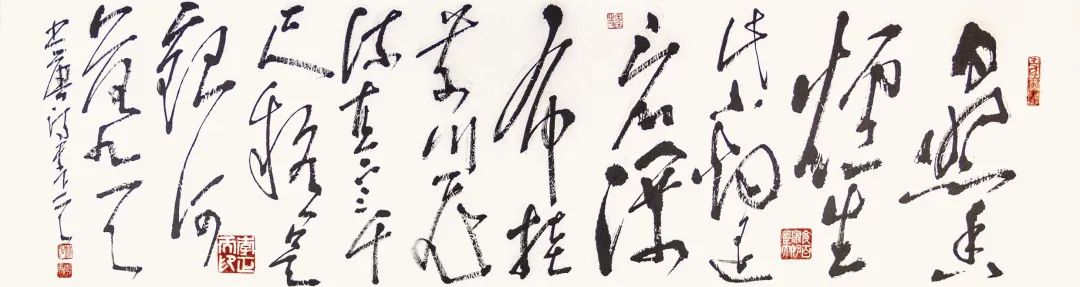 日照香
爐生
紫烟遥
看瀑
布挂
前川飛
流直下三千
尺疑是
銀河
落九天
书唐诗